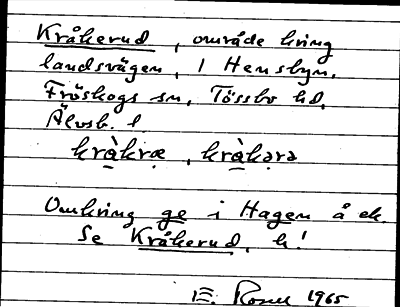 Kråkerud, område kring
landsvägen, i Hensbyn,
Fröskogs sn, Tössbo hd,
Älvsb. l.
kràkræ, kràkərə
Omkring ge i Hagen å ek.
Se Kråkerud, h!
E. Rosell 1965